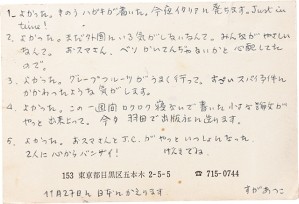 1. よかった。きのうハガキが着いた。今夜イタリアに発ちます。Just in
time!
2. よかった。まだ外国にいる気がしないなんて。みんながやさしい
なんて。おスマさん、ベソかいてんぢゃないかと心配してた
ので。
3. よかった。グレープフルーツがうまく行って。すごいスパイ事件に
かかわったような気がします。
4. よかった。この一週間ロクロク寝ないで書いた小さな論文が
やっと出来上って。今夕 羽田で出版社に渡ります。
5. よかった。おスマさんとJ.C.がやっといっしょになった。
2人に心からバンザイ!
けんとてね
153 東京都目黒区五本木 2-5-5 ☎ 715-0744
11月27日に日本にかえります すがあつこ